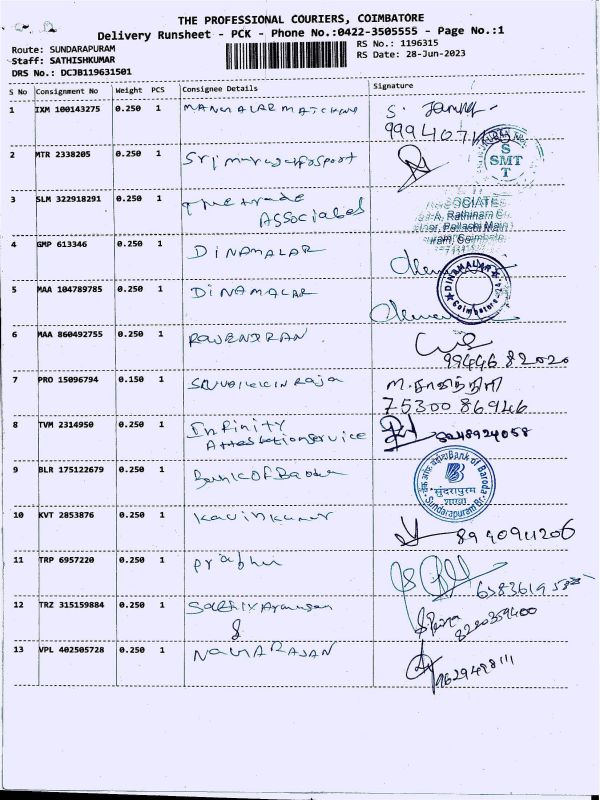 THE PROFESSIONAL COURIERS, COIMBATORE
Delivery Runsheet - PCK - Phone No.:0422-3505555 - Page No.:1
Route: SUNDARAPURAM
Staff: SATHISHKUMAR
DRS No.: DCJB119631501
RS No.: 1196315
RS Date: 28-Jun-2023
S No Consignment No Weight PCS Consignee Details Signature
1 IXM 100143275 0.250 1 MANMALAR MATCHING
2 MTR 2338205 0.250 1
SMT
3 SLM 322918291 0.250 1 trade
ASSOCIATED
ASSOCIATE
Rathinam
Pollachi Main
4 GMP 613346 0.250 1 DINAMALAR
DINAMALAR
Coimbatore-24
5 MAA 104789785 0.250 1 DINAMALAR
6 MAA 860492755 0.250 1 RAJENDRAN
99446 82020
7 PRO 15096794 0.150 1 raja
75300 86946
8 TVM 2314950 0.250 1 Infinity
Attestation service
8248924058
9 BLR 175122679 0.250 1 Bank OF Baroda
Bank of Baroda
सुंदरापुरम
शाखा
Sundarapuram Br.
10 KVT 2853876 0.250 1 Kavinkumar
8940941206
11 TRP 6957220 0.250 1 Prabhu
12 TRZ 315159884 0.250 1
8220359400
13 VPL 402505728 0.250 1 NAGARAJAN
9629498111